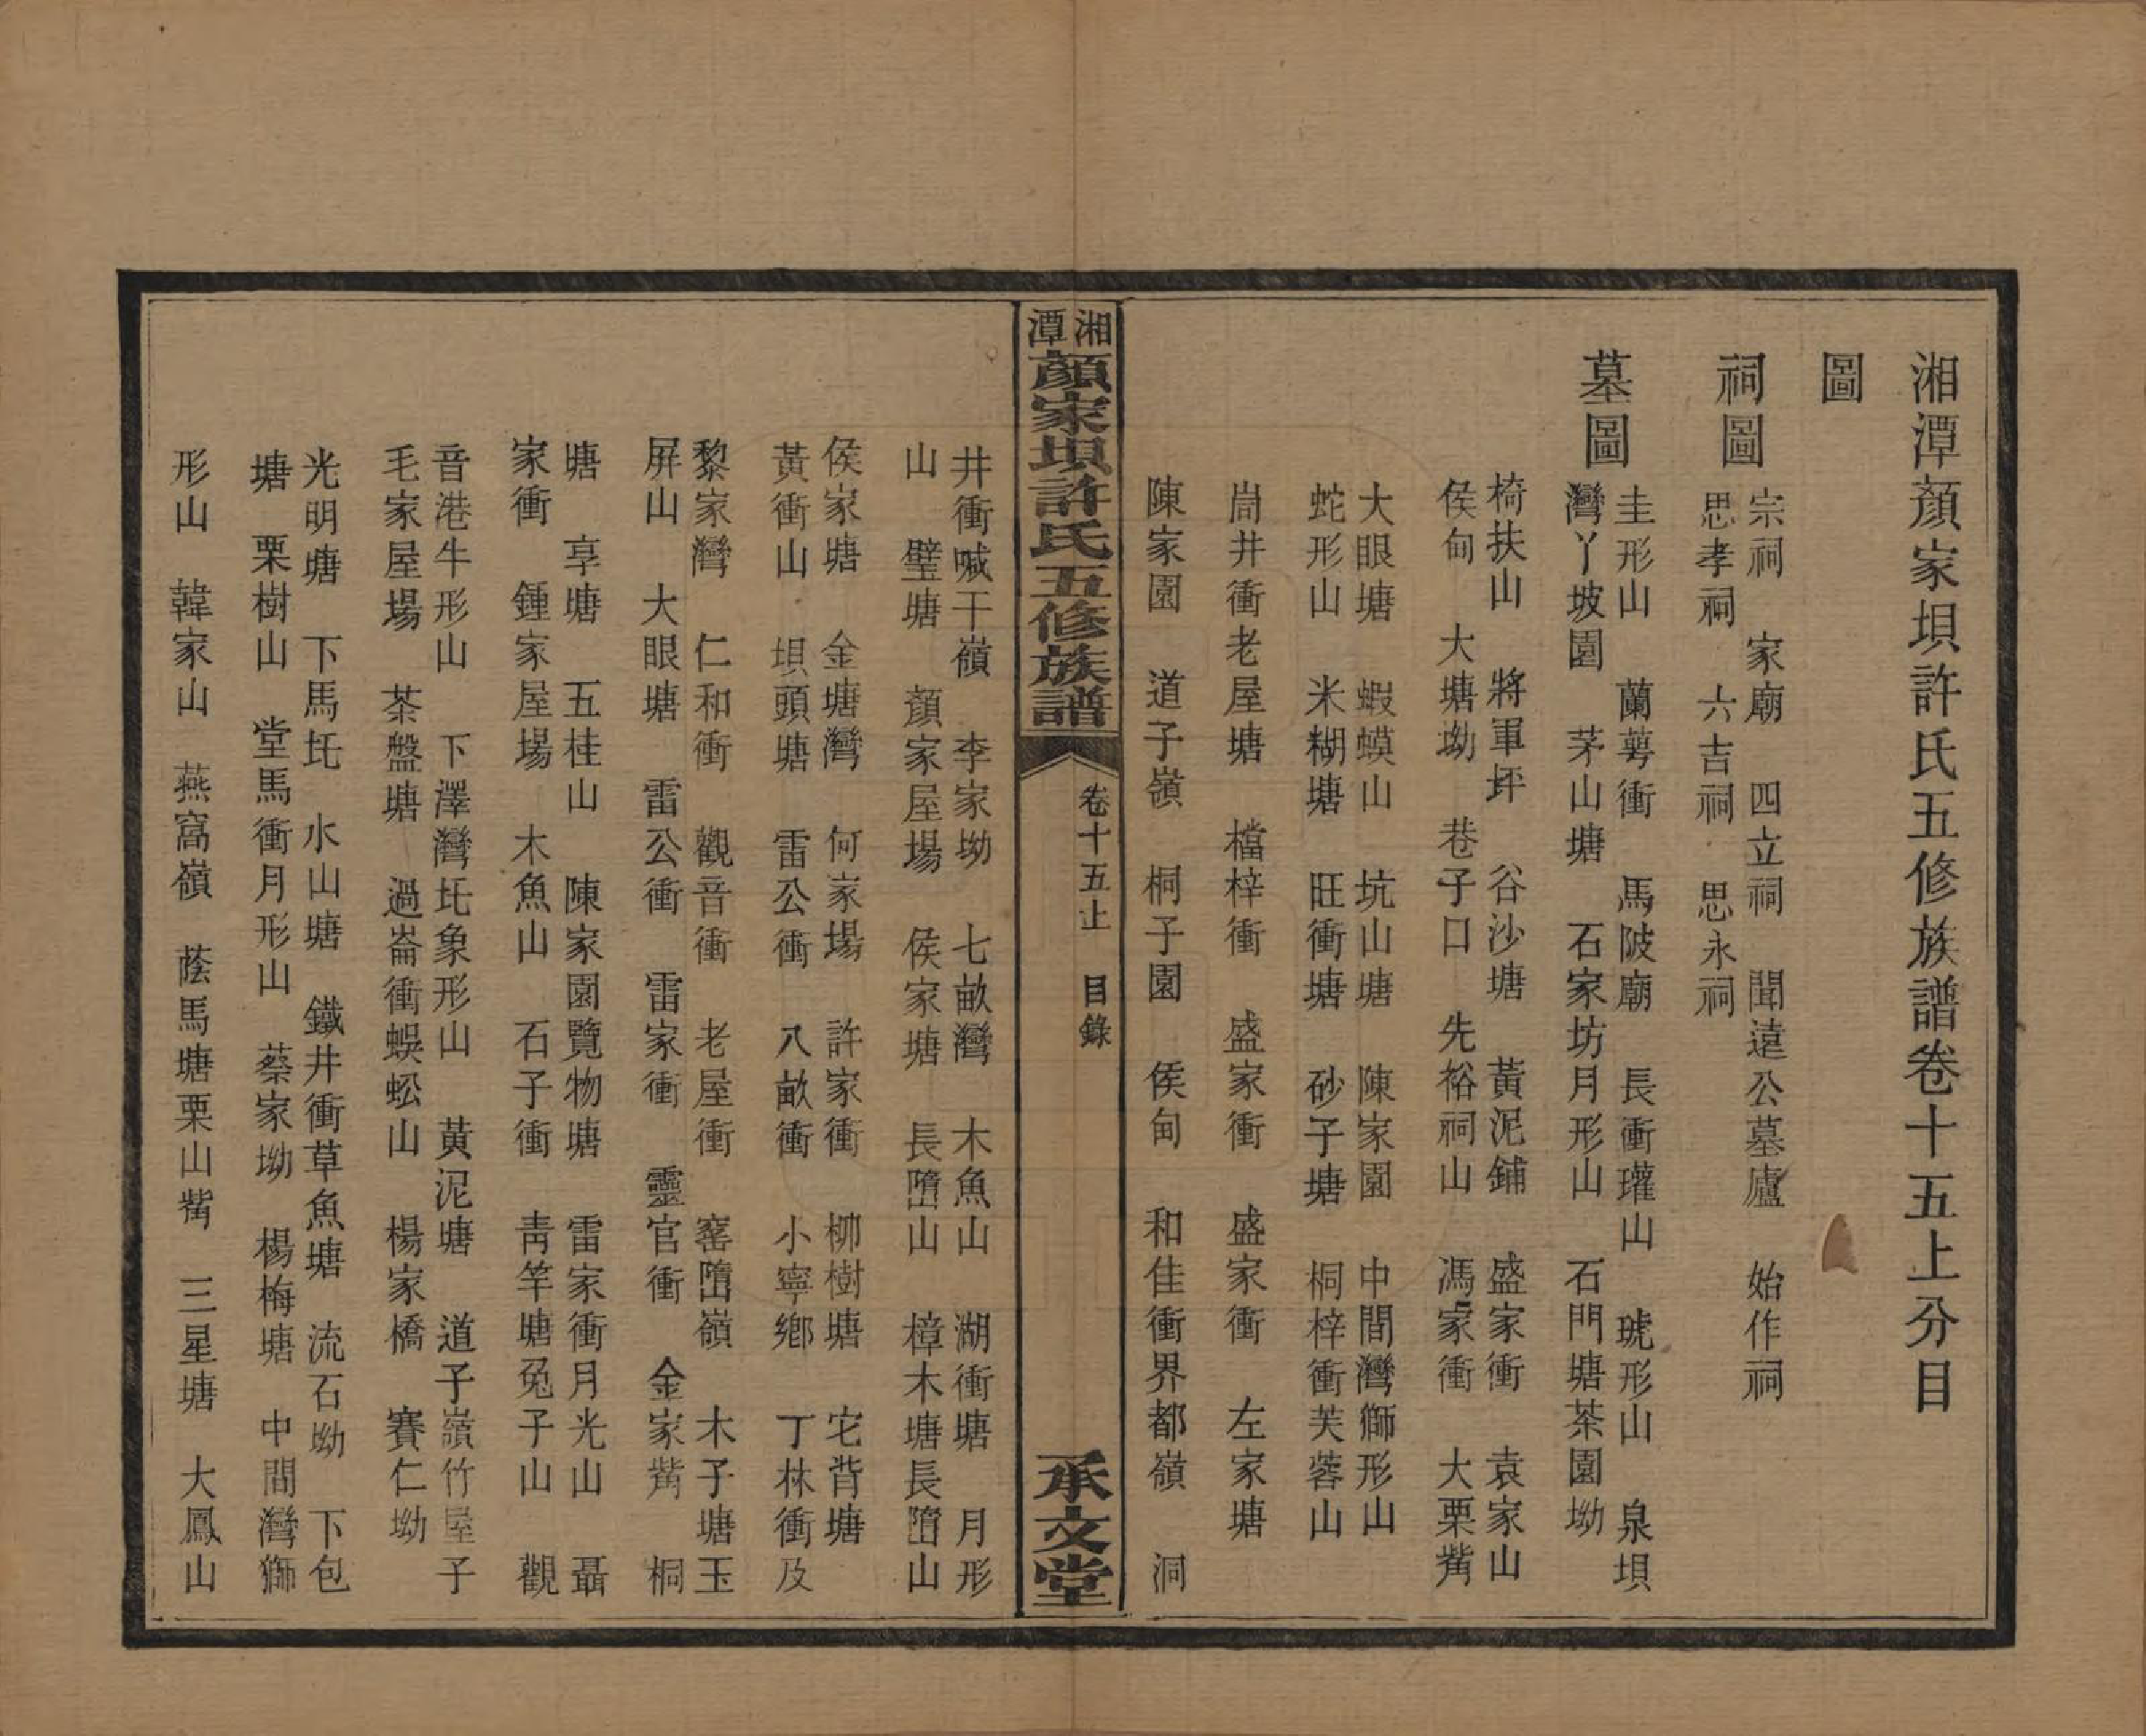 湘潭顏家坝許氏五修族譜卷十五上分目
圖
祠圖
宗祠　家廟　四立祠　聞遠公墓廬　始作祠
思孝祠　六吉祠　思永祠
墓圖
圭形山　蘭萼衝　馬陂廟　長衝瓘山　琥形山　泉坝
灣丫坡園　茅山塘　石家坊月形山　石門塘茶園坳
椅扶山　將軍坪　谷沙塘　黃泥鋪　盛家衝　袁家山
侯甸　大塘坳　巷子口　先裕祠山　馮家衝　大栗嘴
大眼塘　蝦蟆山　坑山塘　陳家園　中間灣獅形山
蛇形山　米糊塘　旺衝塘　砂子塘　桐梓衝芙蓉山
崗井衝老屋塘　檔梓衝　盛家衝　盛家衝　左家塘
陳家園　道子嶺　桐子園　侯甸　和佳衝界都嶺　洞
湘潭顏家坝許氏五修族譜　卷十五上　目錄　承文堂
井衝喊干嶺　李家坳　七畝灣　木魚山　湖衝塘　月形
山　璧塘　顏家屋場　侯家塘　長墮山　樟木塘長墮山
侯家塘　金塘灣　何家場　許家衝　柳樹塘　宅背塘
黃衝山　坝頭塘　雷公衝　八畝衝　小寧鄉　丁林衝及
黎家灣　仁和衝　觀音衝　老屋衝　窰墮嶺　木子塘玉
屏山　大眼塘　雷公衝　雷家衝　靈官衝　金家嘴　桐
塘　享塘　五桂山　陳家園覽物塘　雷家衝月光山　聶
家衝　鍾家屋場　木魚山　石子衝　靑竿塘兔子山　觀
音港牛形山　下澤灣圫象形山　黃泥塘　道子嶺竹屋子
毛家屋場　茶盤塘　過崙衝蜈蚣山　楊家橋　賽仁坳
光明塘　下馬圫　水山塘　鐵井衝草魚塘　流石坳　下包
塘　栗樹山　堂馬衝月形山　蔡家坳　楊梅塘　中間灣獅
形山　韓家山　燕窩嶺　蔭馬塘栗山嘴　三星塘　大鳳山